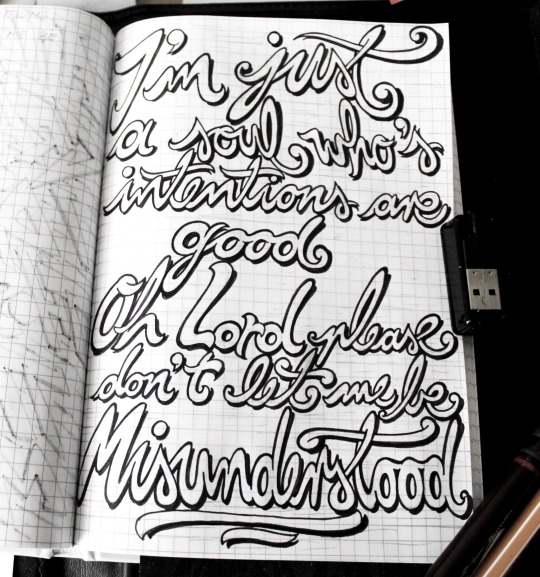 I'm just
a soul who's
intentions are
good
Oh Lord please
don't let me be
Misunderstood